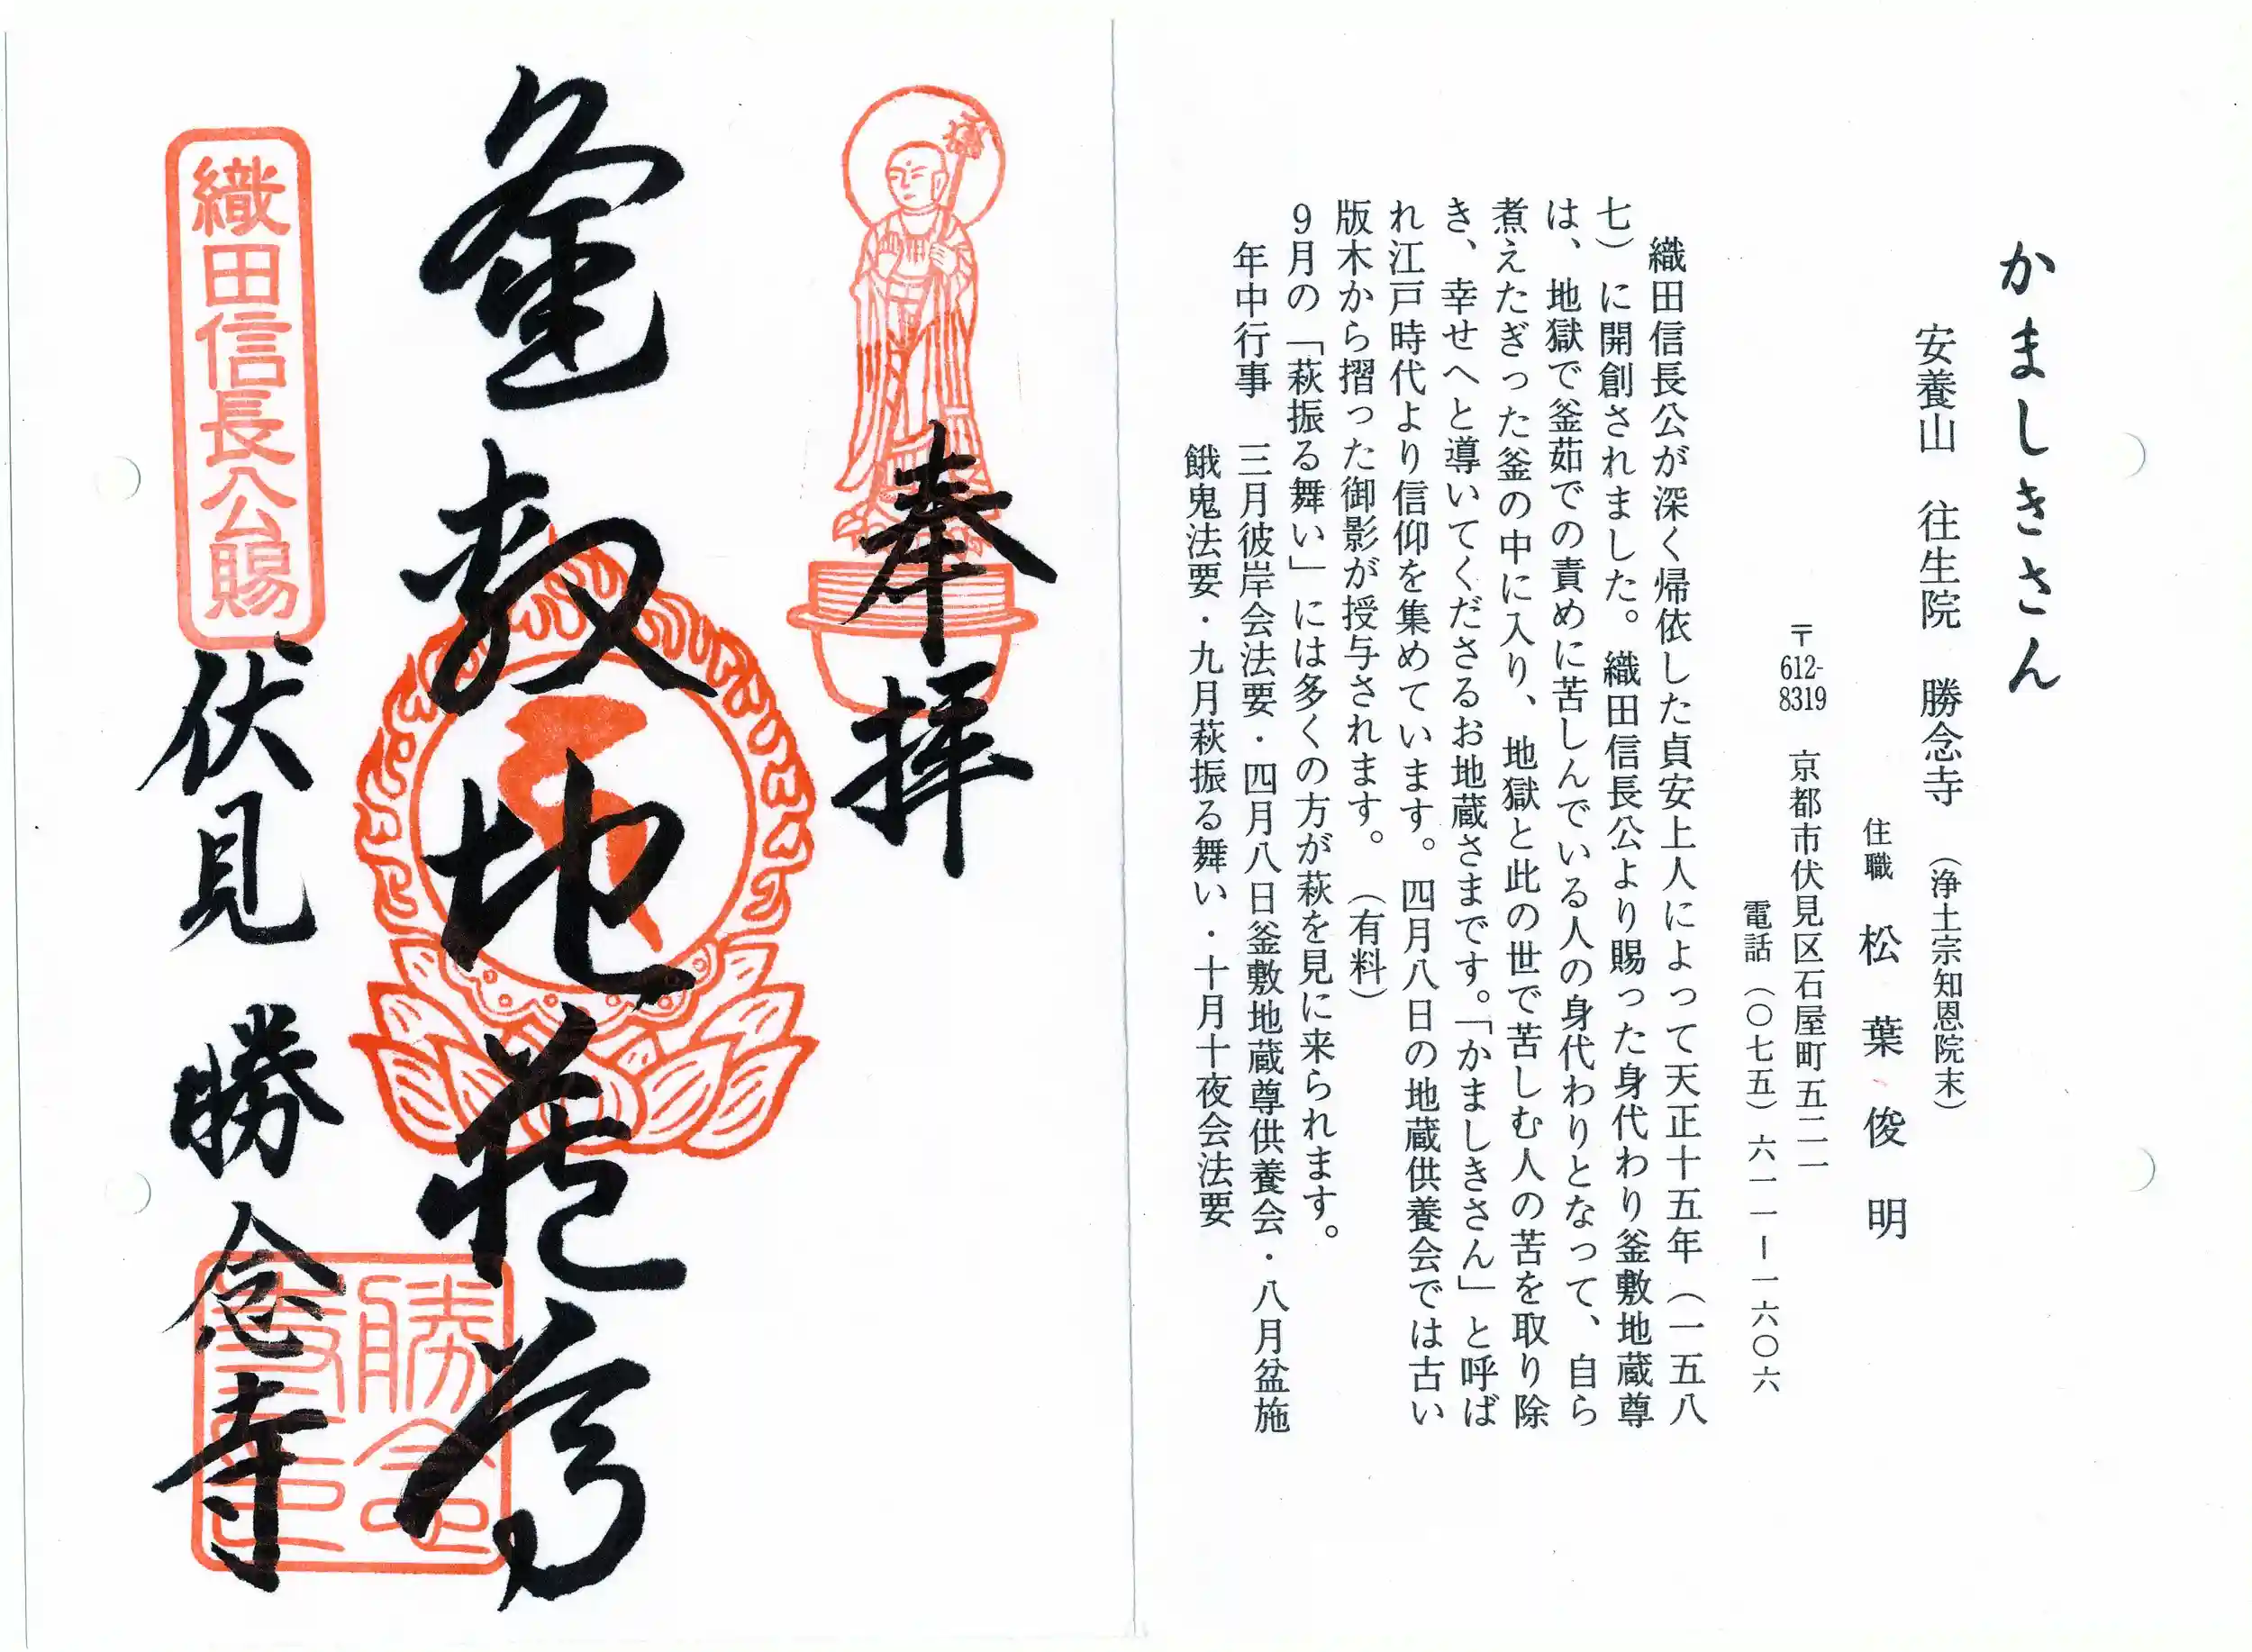 かましきさん
安養山　往生院　勝念寺　（浄土宗知恩院末）
住職　松葉俊明
〒612-8319　京都市伏見区石屋町五二一
電話（〇七五）六一一ー一六〇六
織田信長公が深く帰依した貞安上人によって天正十五年（一五八
七）に開創されました。織田信長公より賜った身代わり釜敷地蔵尊
は、地獄で釜茹での責めに苦しんでいる人の身代わりとなって、自ら
煮えたぎった釜の中に入り、地獄と此の世で苦しむ人の苦を取り除
き、幸せへと導いてくださるお地蔵さまです。「かましきさん」と呼ば
れ江戸時代より信仰を集めています。四月八日の地蔵供養会では古い
版木から摺った御影が授与されます。（有料）
9月の「萩振る舞い」には多くの方が萩を見に来られます。
年中行事　三月彼岸会法要・四月八日釜敷地蔵尊供養会・八月盆施
餓鬼法要・九月萩振る舞い・十月十夜会法要
奉拝
釜敷地蔵尊
織田信長公賜
伏見　勝念寺
勝念
寺印